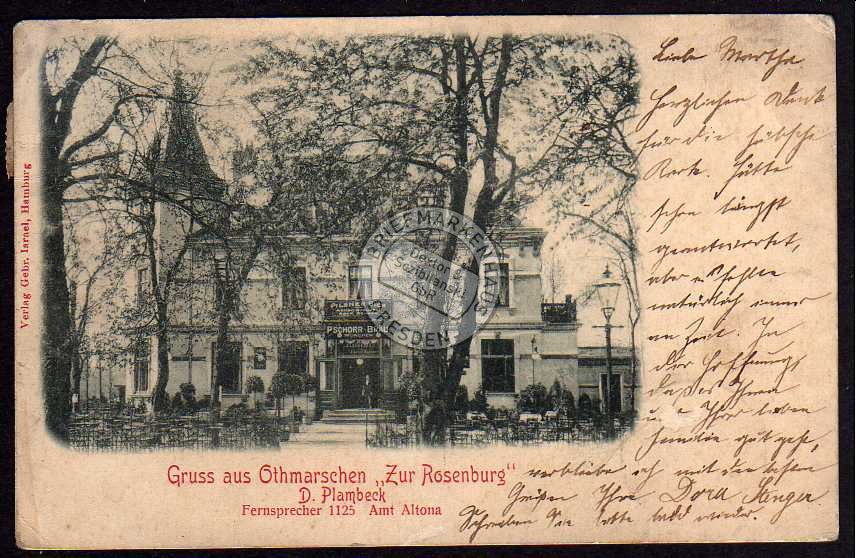 Liebe Martha
Herzlichen Dank
für die hübsche
Karte. Hätte
schon längst
geantwortet,
aber es fehlte
natürlich immer
an Zeit. In
der Hoffnung,
dass es Ihnen
u. Ihrer lieben
Familie gut geht,
verbleibe ich mit den besten
Grüßen Ihre Dora Senger
Schreiben Sie bitte bald wieder.
PILSNER
PSCHORR-BRÄU
MÜNCHEN
Gruss aus Othmarschen „Zur Rosenburg"
D. Plambeck
Fernsprecher 1125 Amt Altona
Verlag Gebr. Israel, Hamburg
BRIEFMARKENHAUS
Doktor
GbR
DRESDEN